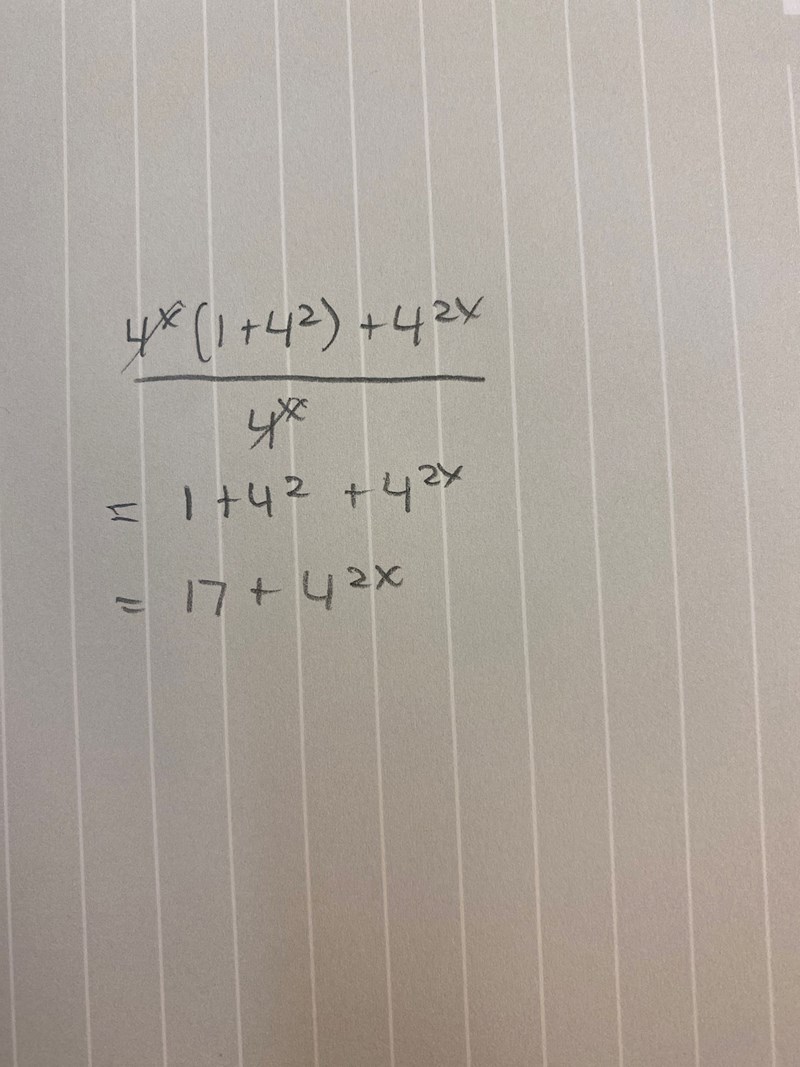 4ˣ(1+4²)+4²ˣ
/
4ˣ
= 1+4² +4²ˣ
= 17+4²ˣ